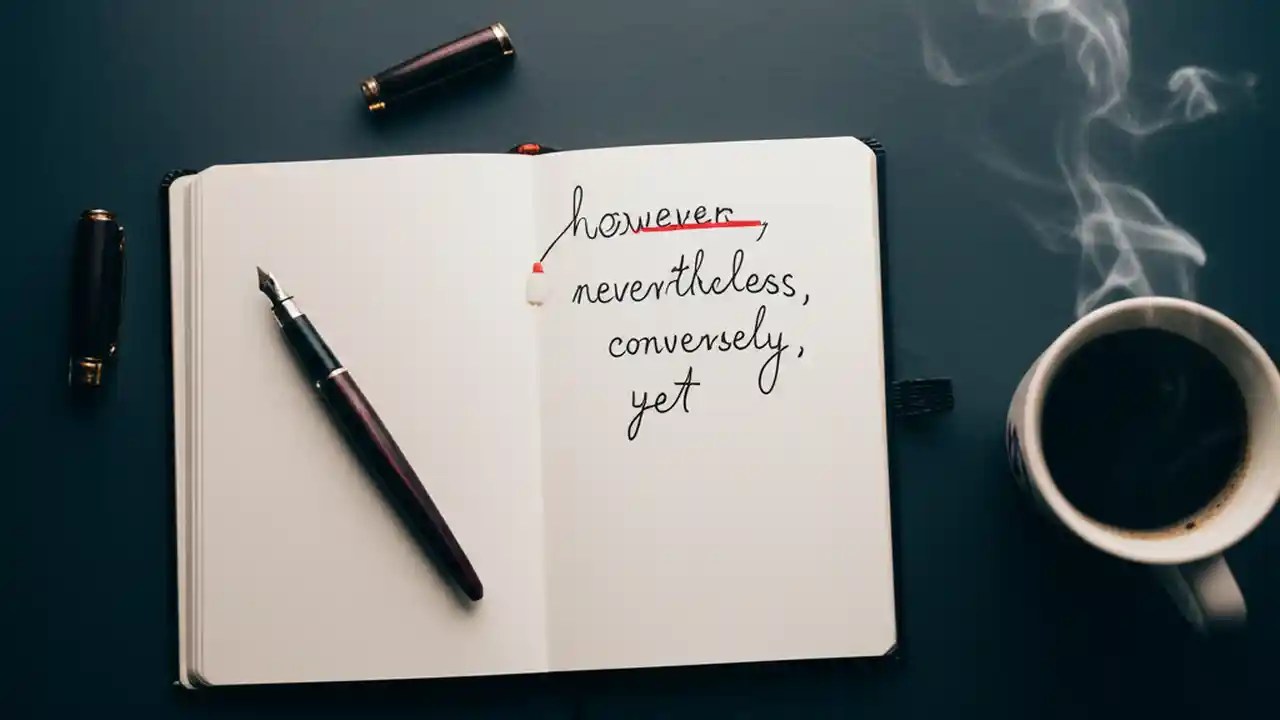 however,
nevertheless,
conversely,
yet